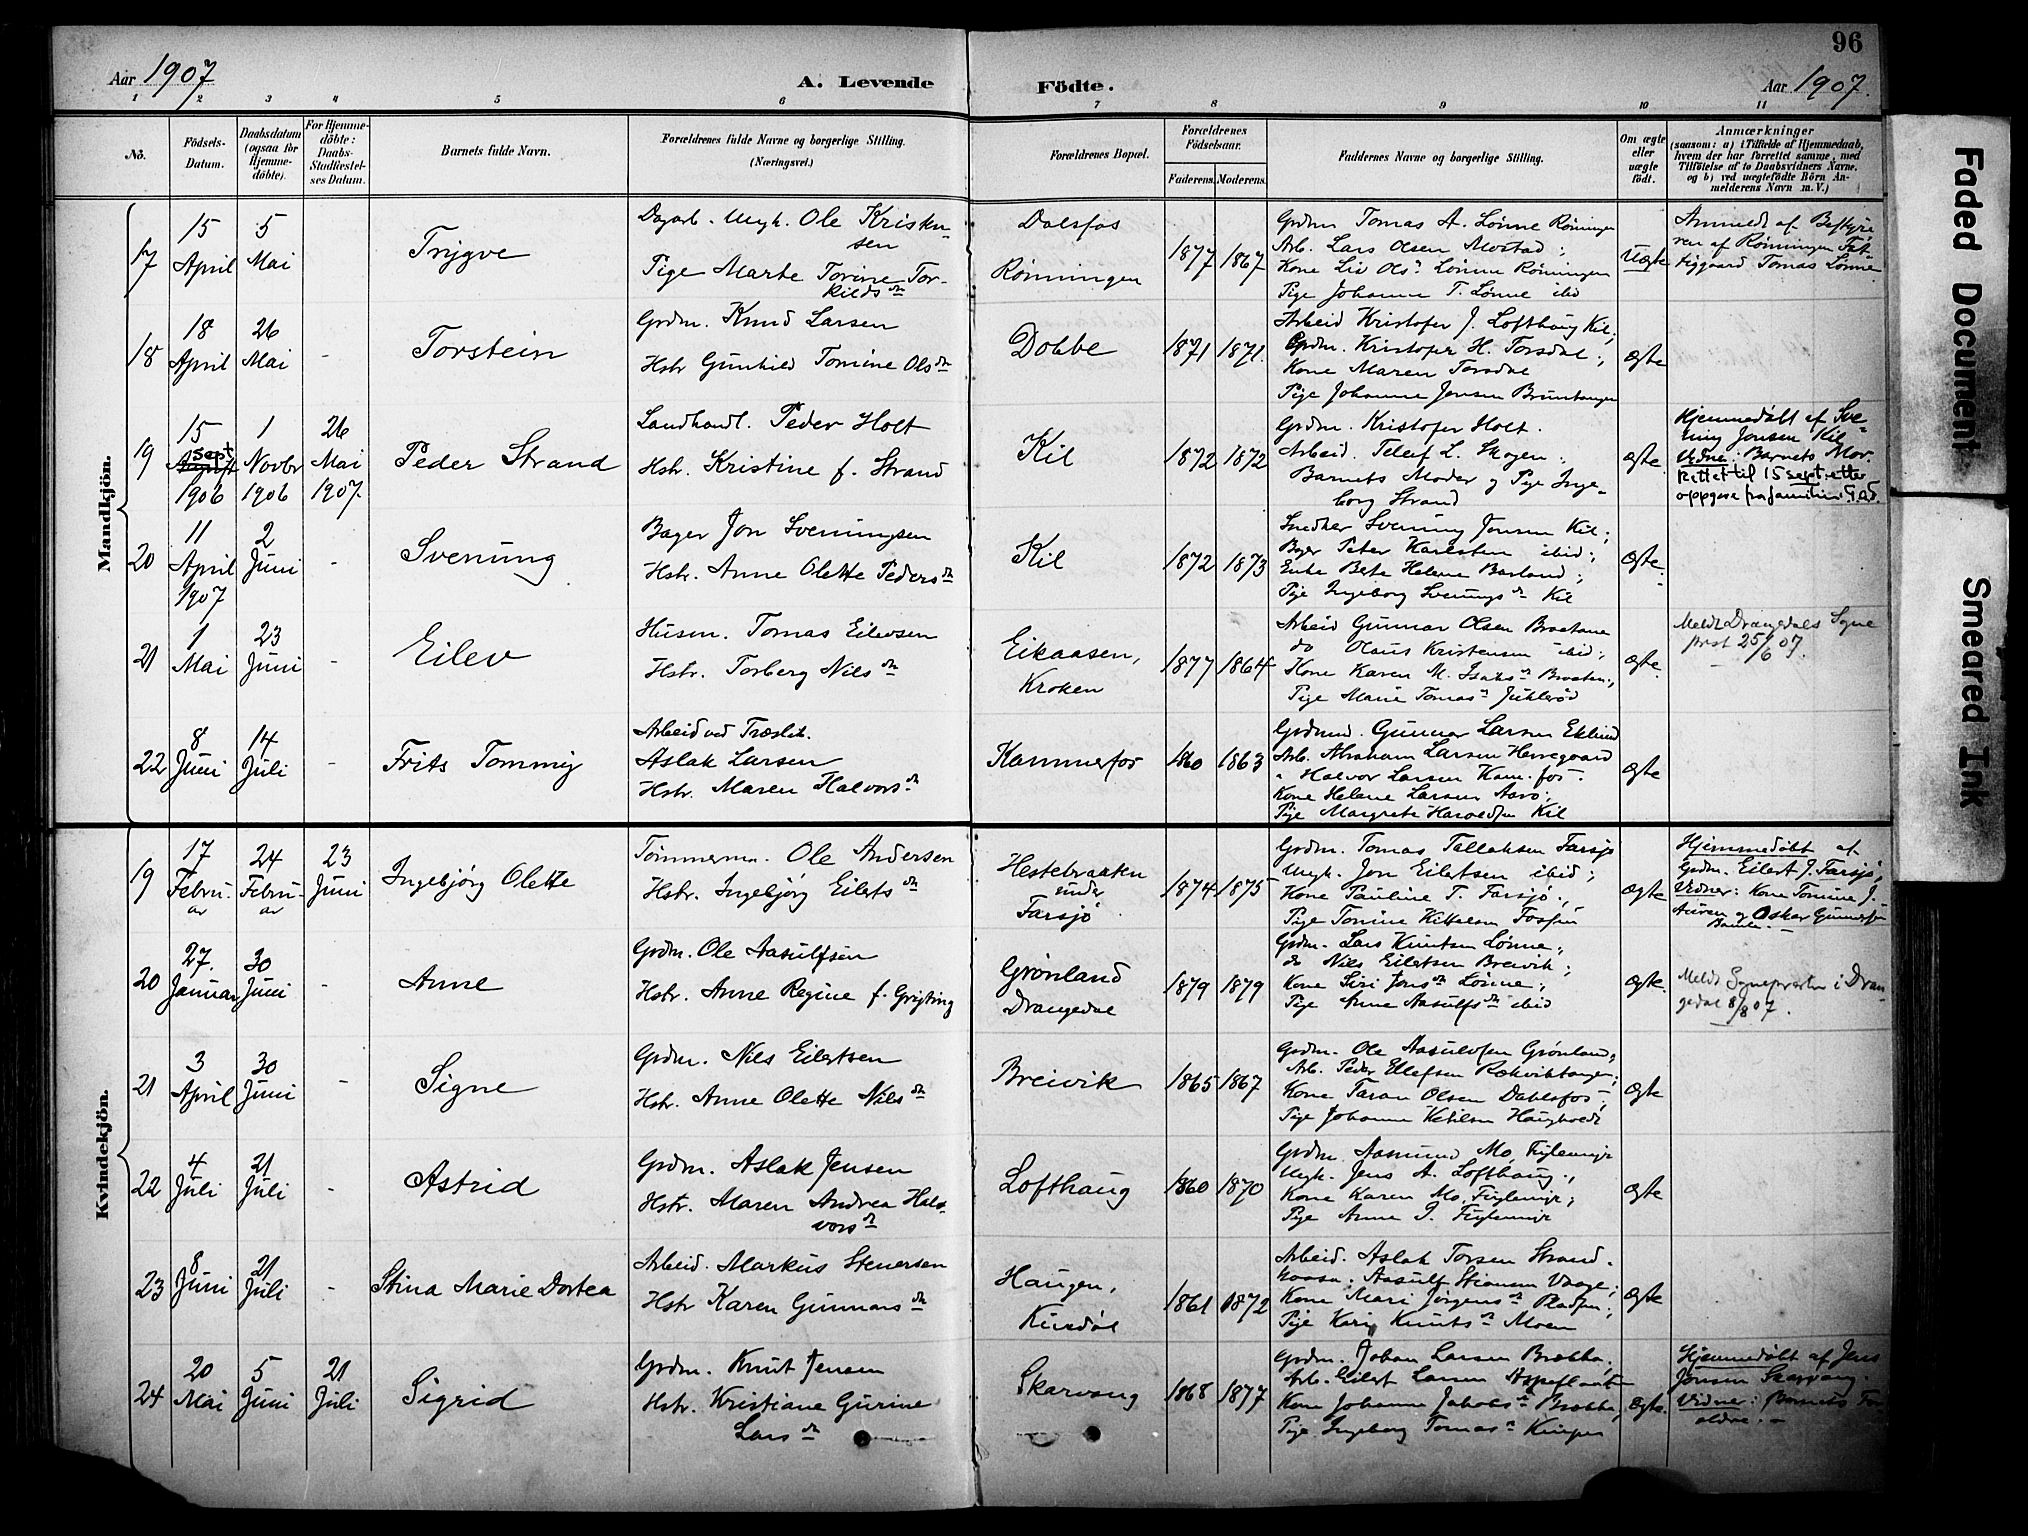 96
Aar 1907
A. Levende
Födte.
Aar 1907.
1 2 3 4 5 6 7 8 9 10 11
No.
Födsels-
Datum.
Daabsdatum
(ogsaa for
Hjemme-
döbte).
For Hjemme-
döbte:
Daabs-
Stadfæstel-
ses Datum.
Barnets fulde Navn.
Forældrenes fulde Navne og borgerlige Stilling.
(Næringsvei.)
Forældrenes Bopæl.
Forældrenes
Födselsaar.
Faderens.
Moderens.
Faddernes Navne og borgerlige Stilling.
Om ægte
eller
uægte
födt.
Anmærkninger
(saasom: a) i Tilfælde af Hjemmedaab,
hvem der har forrettet samme, med
Tilföielse af to Daabsvidners Navne,
og b) ved uægtefödte Börn An-
melderens Navn m. V.)
Mandkjön.
17
15
April
5
Mai
Trygve
Dagarb. Ungk. Ole Kristen-
sen
Pige Marte Torine Tor-
kildsdn
Dalsfos
Rønningen
1877
1867
Grdm Tomas A. Lønne Rønningen
Arb. Lars Olsen Mostad;
Kone Liv Olsn Lønne Rønningen
Pige Johanne T. Lønne ibid
Uægte
Anmeldt af Bestyre-
ren af Rønningen Fat-
tiggaard Tomas Lønne
18
18
April
26
Mai
-
Torstein
Grdm. Knud Larsen
Hstr Gunhild Tomine Olsdn
Dobbe
1871
1871.
Arbeid Kristofer J. Lofthaug Kil;
Grdm. Kristofer H. Torsdal;
Kone Maren Torsdal
Pige Johanne Jensen Bruntangen
Ægte
19
15
Sept
1906
1
Novbr
1906
26
Mai
1907.
Peder Strand
Landhandl. Peder Holt
Hstr. Kristine f. Strand
Kil
1872
1872
Grdm. Kristofer Holt.
Arbeid. Tellef L. Skogen;
Barnets Moder og Pige Inge-
borg Strand
Ægte.
Hjemmedøbt af Sve-
ning Jonsen Kil
Vidne: Barnets Mor
Rettet til 15 sept. etter
oppgave fra familien
20
11
April
1907
2
Juni
-
Svenung
Bager Jon Sveningsen
Hstr. Anne Olette Pedersdn
Kil
1872
1873
Snedker Svenung Jonsen Kil;
Bager Peter Karlsten ibid;
Enke Berte Helene Barland;
Pige Ingeborg Svenungsdn Kil
Ægte.
21
1
Mai
23
Juni
-
Eilev
Husm. Tomas Eilevsen
Hstr. Torberg Nilsdn
Eikaasen,
Kroken
1877
1864
Arbeid Gunnar Olsen Braatane
do Olaus Kristensen ibid;
Kone Karen M. Isaksn Braaten;
Pige Marie Tomasn
Ægte.
Meldt Drangedals Sogne-
prest 25/6 07.
22
8
Juni
14
Juli
-
Frits Tommy
Arbeid ved Træslib.
Aslak Larsen
Hstr. Maren Halvorsdn
Kammerfos
1860
1863
Grdmd. Gunnar Larsen Eklund
Arb. Abraham Larsen Herregaard
" Halvor Larsen Kam.fos-
Kone Helene Larsen Aarø;
Pige Margrete Haroldsen Kil
Ægte
Kvindekjön.
19
17
Febru-
ar
24
Febru-
ar
23
Juni
Ingebjørg Olette
Tømmerm. Ole Andersen
Hstr. Ingebjørg Eilertsdn
Hestebraaten
under
Farsjø
1874
1875
Grdm. Tomas Tallaksen Farsjø
Ungk. Jon Eilertsen ibid;
Kone Pauline T. Farsjø;
Pige Tomine Kittelsen Fossen
Ægte
Hjemmedøbt af
Grdm. Eilert J. Farsjø,
Vidner: Kone Tomine J.
og Oskar Gunnersen
20
27.
Januar
30
Juni
-
Anne
Grdm. Ole Aasulfsen
Hstr. Anne Regine f. Grigting
Grønland
Drangedal
1879
1879
Grdm. Lars Knutsen Lønne;
do Nils Eilertsen Breivik;
Kone Siri Jonsdn Lønne;
Pige Anne Aasulfsdn ibid
Ægte.
Meldt Sognepresten i Dran-
gedal 8/8 07.
21
3
April
30
Juni
-
Signe
Grdm. Nils Eilertsen
Hstr. Anne Olette Nilsdn
Breivik
1865
1867
Grdm. Ole Aasulvsen Grønland;
Arb. Peder Ellefsen Rækviktangen;
Kone Taran Olsen Dahlsfos;
Pige Johanne Ketilsen Haugholt
Ægte
22
4
Juli
21
Juli
-
Astrid
Grdm. Aslak Jensen
Hstr. Maren Andrea Hal-
vorsdn
Lofthaug
1860
1870
Grdm. Aasmund Mo, Fuglemyr
Ungk. Jens A. Lofthaug;
Kone Karen Mo, Fuglemyr;
Pige Anne J. Fuglemyr
Ægte
23
8
Juni
21
Juli
-
Stina Marie Dortea
Arbeid. Markus Stenersen
Hstr Karen Gunnarsdn
Haugen,
1861
1872
Arbeid. Aslak Torsen Strand-
Aasulf Stiansen Vaage;
Kone Mari Jørgensdn Pladsen;
Pige Kari Knutsn Moen
Ægte
24
20
Mai
5
Juni
21
Juli
Sigrid
Grdm. Knut Jensen
Hstr. Kristiane Gurine
Larsdn
Skarvang
1868
1877
Grdm. Johan Larsen Brække;
Arb. Eilert Larsen Aspeflaat
Kone Johanne Jakobsdn Brække;
Pige Ingeborg Tomasn
Ægte.
Hjemmedøbt af Jens
Jonsen Skarvang.
Vidner: Barnets For-
ældre. -
Faded Document
Smeared Ink